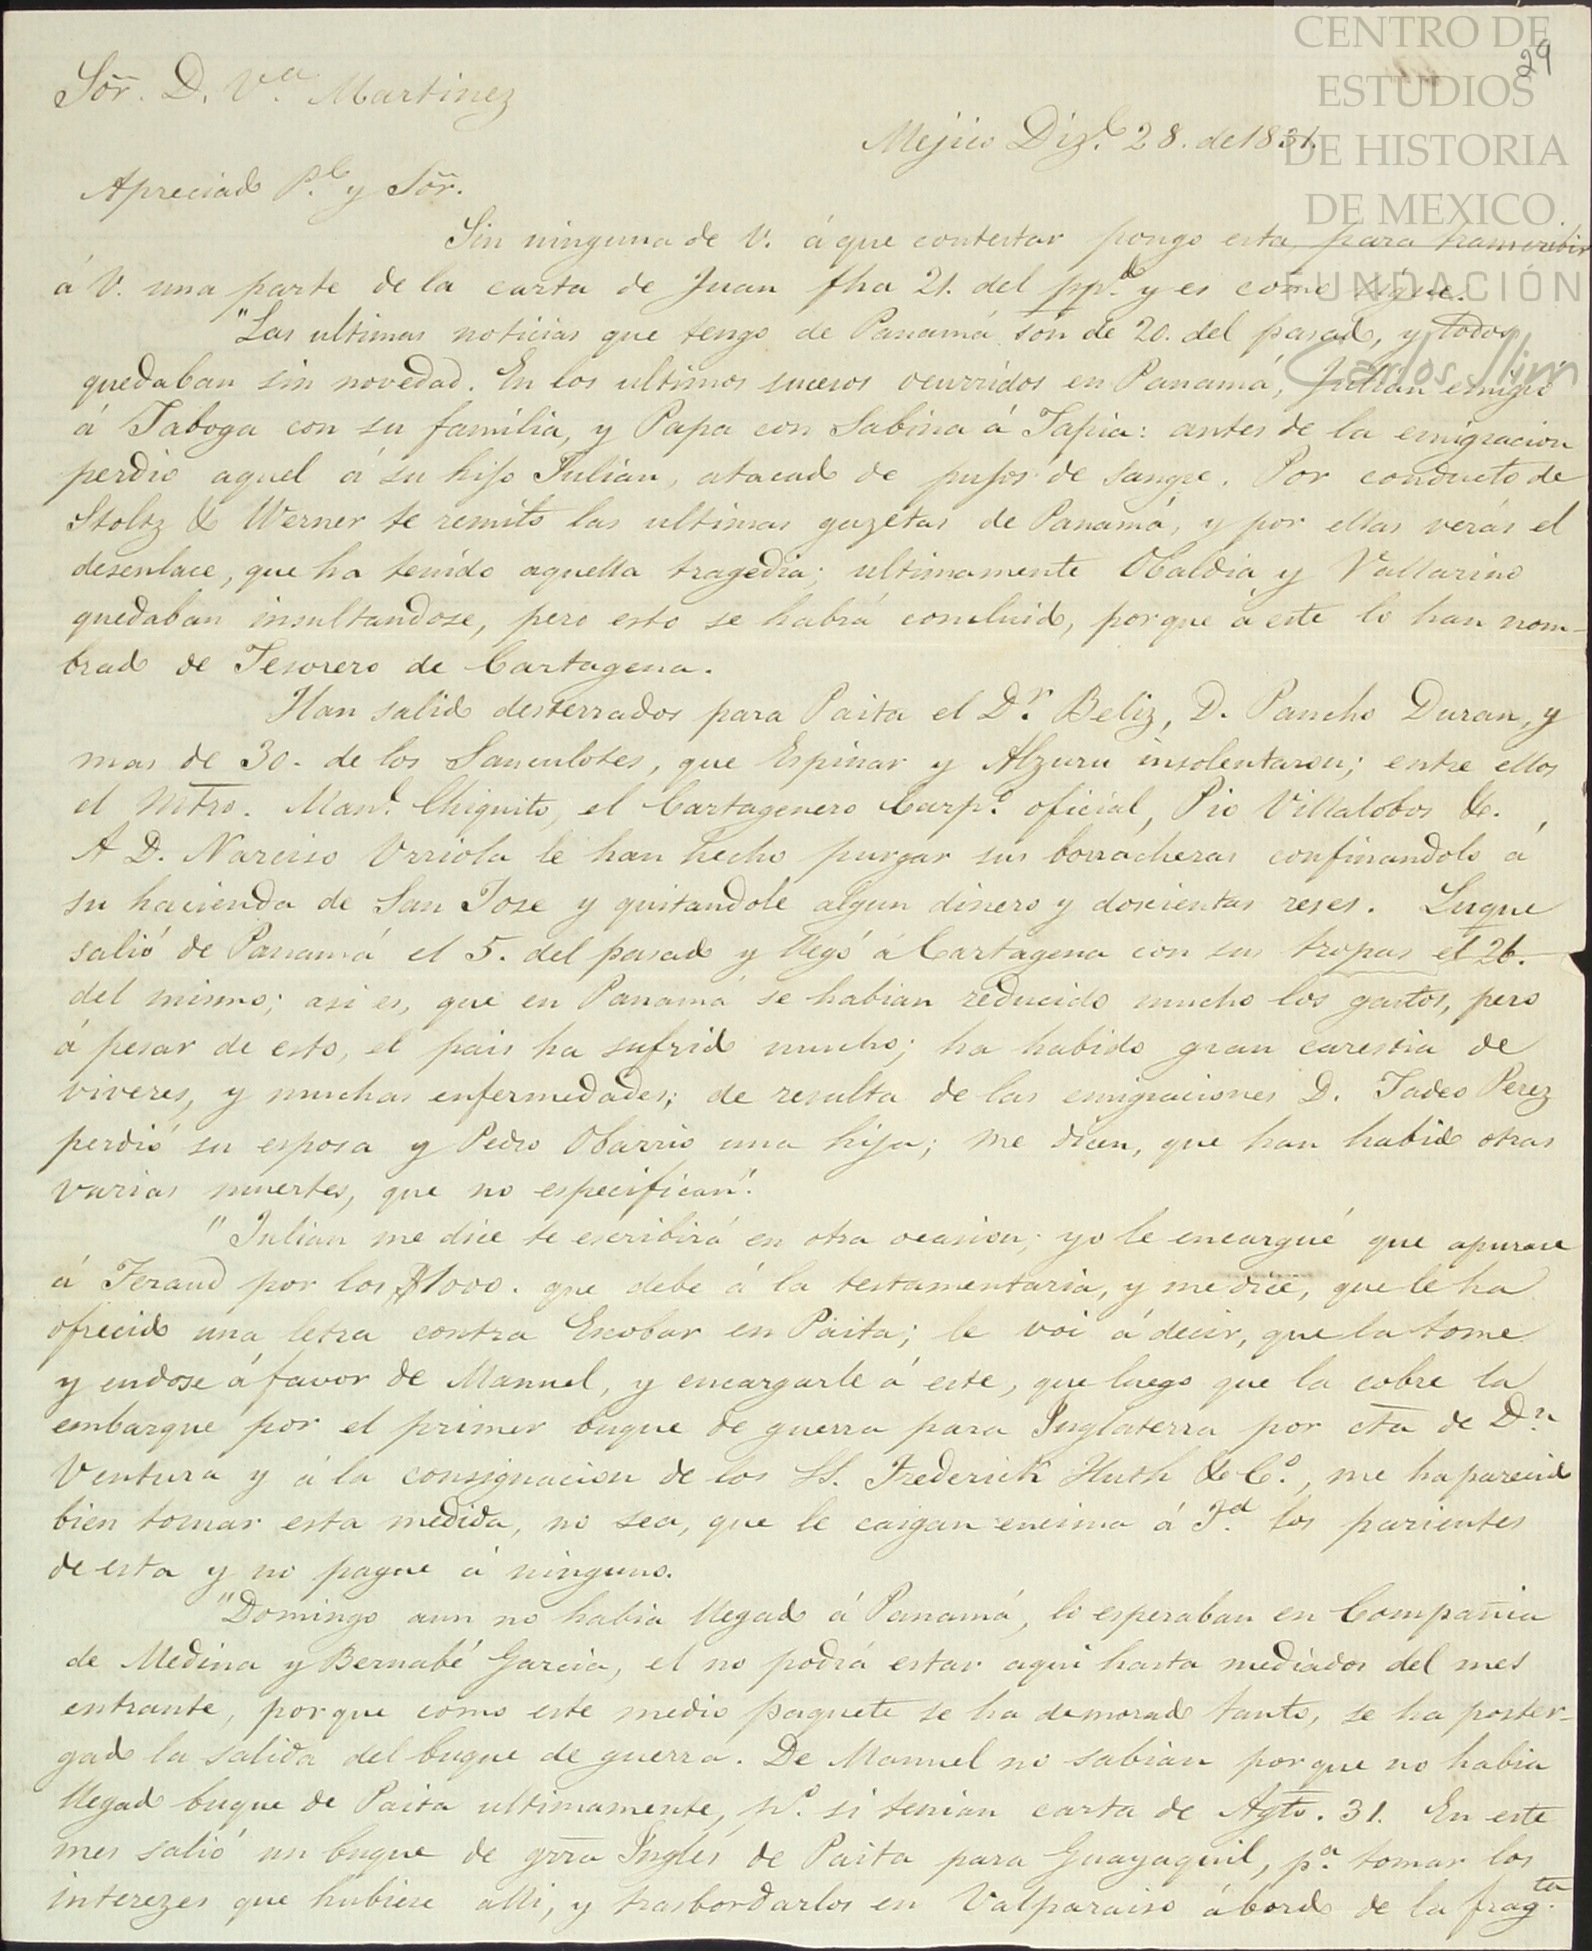 CENTRO DE
ESTUDIOS
DE HISTORIA
DE MEXICO.
FUNDACIÓN
Carlos Slim
29
Sõr. D. V.ª Martinez
Mejico Diz.e 28. de 1831.
Apreciado P.e y Sõr.
Sin ninguna de V. á que contestar pongo esta para transcribir
á V. una parte de la carta de Juan fha 21. del pp.do y es como sigue.
"Las ultimas noticias que tengo de Panamá son de 20. del pasado, y todos
quedaban sin novedad. En los ultimos sucesos ocurridos en Panamá, Julian emigró
á Taboga con su familia, y Papa con Sabina á Tapia: antes de la emigracion
perdio aquel á su hijo Julian, atacado de pujos de sangre. Por conducto de
Stoltz & Werner te remito las ultimas gazetas de Panamá, y por ellas verás el
desenlace, que ha tenido aquella tragedia; ultimamente Obaldia y Vallarino
quedaban insultandose, pero esto se habrá concluido, porque á este lo han nom-
brado de Tesorero de Cartagena.
Han salido desterrados para Paita el D.r Beliz, D. Pancho Duran, y
mas de 30. de los Sanculotes, que Espinar y Alzuru insolentaron; entre ellos
el Mtro. Man.l Chiquito, el Cartagenero Carp.o oficial, Pio Villalobos &.
A D. Narciso Urriola le han hecho purgar sus borracheras confinandolo á
su hacienda de San Jose y quitandole algun dinero y doscientas reses. Luque
salió de Panamá el 5. del pasado y llegó á Cartagena con sus tropas el 26.
del mismo; asi es, que en Panamá se habian reducido mucho los gastos, pero
á pesar de esto, el pais ha sufrido mucho; ha habido gran carestia de
viveres, y muchas enfermedades; de resulta de las emigraciones D. Tadeo Perez
perdió su esposa y Pedro Obarrio una hija; me dicen, que han habido otras
varias muertes, que no especifican".
"Julian me dice te escribirá en otra ocasion; yo le encargué que apurase
á Feraud por los $1000. que debe á la testamentaria, y me dice, que le ha
ofrecido una letra contra Escobar en Paita; le voi á decir, que la tome
y endose á favor de Manuel, y encargarle á este, que luego que la cobre la
embarque por el primer buque de guerra para Inglaterra por cta de D.n
Ventura y á la consignacion de los SS. Frederick Huth & C.o, me ha parecido
bien tomar esta medida, no sea, que le caigan encima á F.d los parientes
de esta y no pague á ninguno.
"Domingo aun no habia llegado á Panamá, lo esperaban en Compañia
de Medina y Bernabé Garcia, el no podrá estar aqui hasta mediados del mes
entrante, porque como este medio paquete se ha demorado tanto, se ha poster-
gado la salida del buque de guerra. De Manuel no sabian porque no habia
llegado buque de Paita ultimamente, p.o si tenian carta de Agto. 31. En este
mes salió un buque de grra Ingles de Paita para Guayaquil, p.a tomar los
interezes que hubiese alli, y trasbordarlos en Valparaiso á bordo de la frag.ta